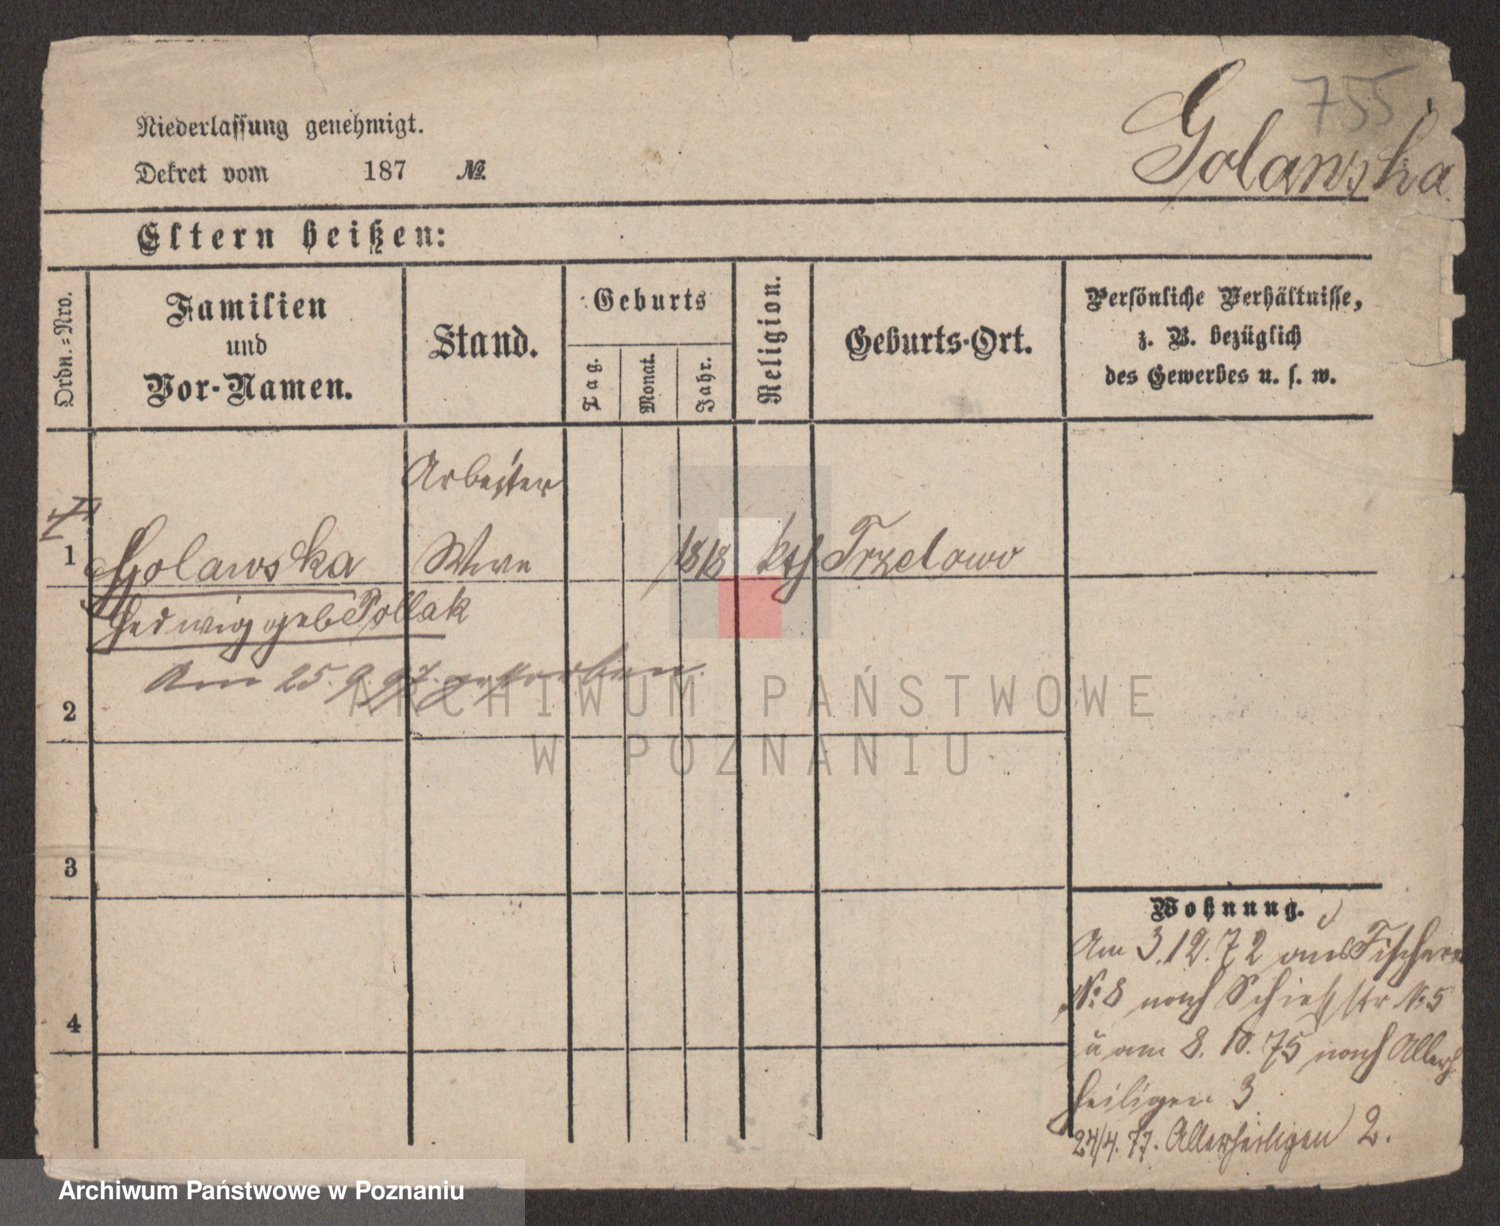 755
Golawska
Niederlassung genehmigt.
Dekret vom 187 №
Eltern heißen:
Ordn.=Nro.
Familien
und
Vor-Namen.
Stand.
Geburts
Tag.
Monat.
Jahr.
Religion.
Geburts-Ort.
Persönliche Verhältnisse,
z. B. bezüglich
des Gewerbes u. s. w.
Arbeiter
1 Golawska Wwe 1818 kth Trzelawo
Hedwig geb Pollak
Am 25. 9. 97. gestorben.
2
3
4
Wohnung.
Am 3.12.72 aus Fischerei
№ 8 nach Schießstr № 5
u am 8. 10. 75 nach Allerh
heiligen 3
24/4. 77. Allerheiligen 2.
ARCHIWUM PAŃSTWOWE
W POZNANIU
Archiwum Państwowe w Poznaniu